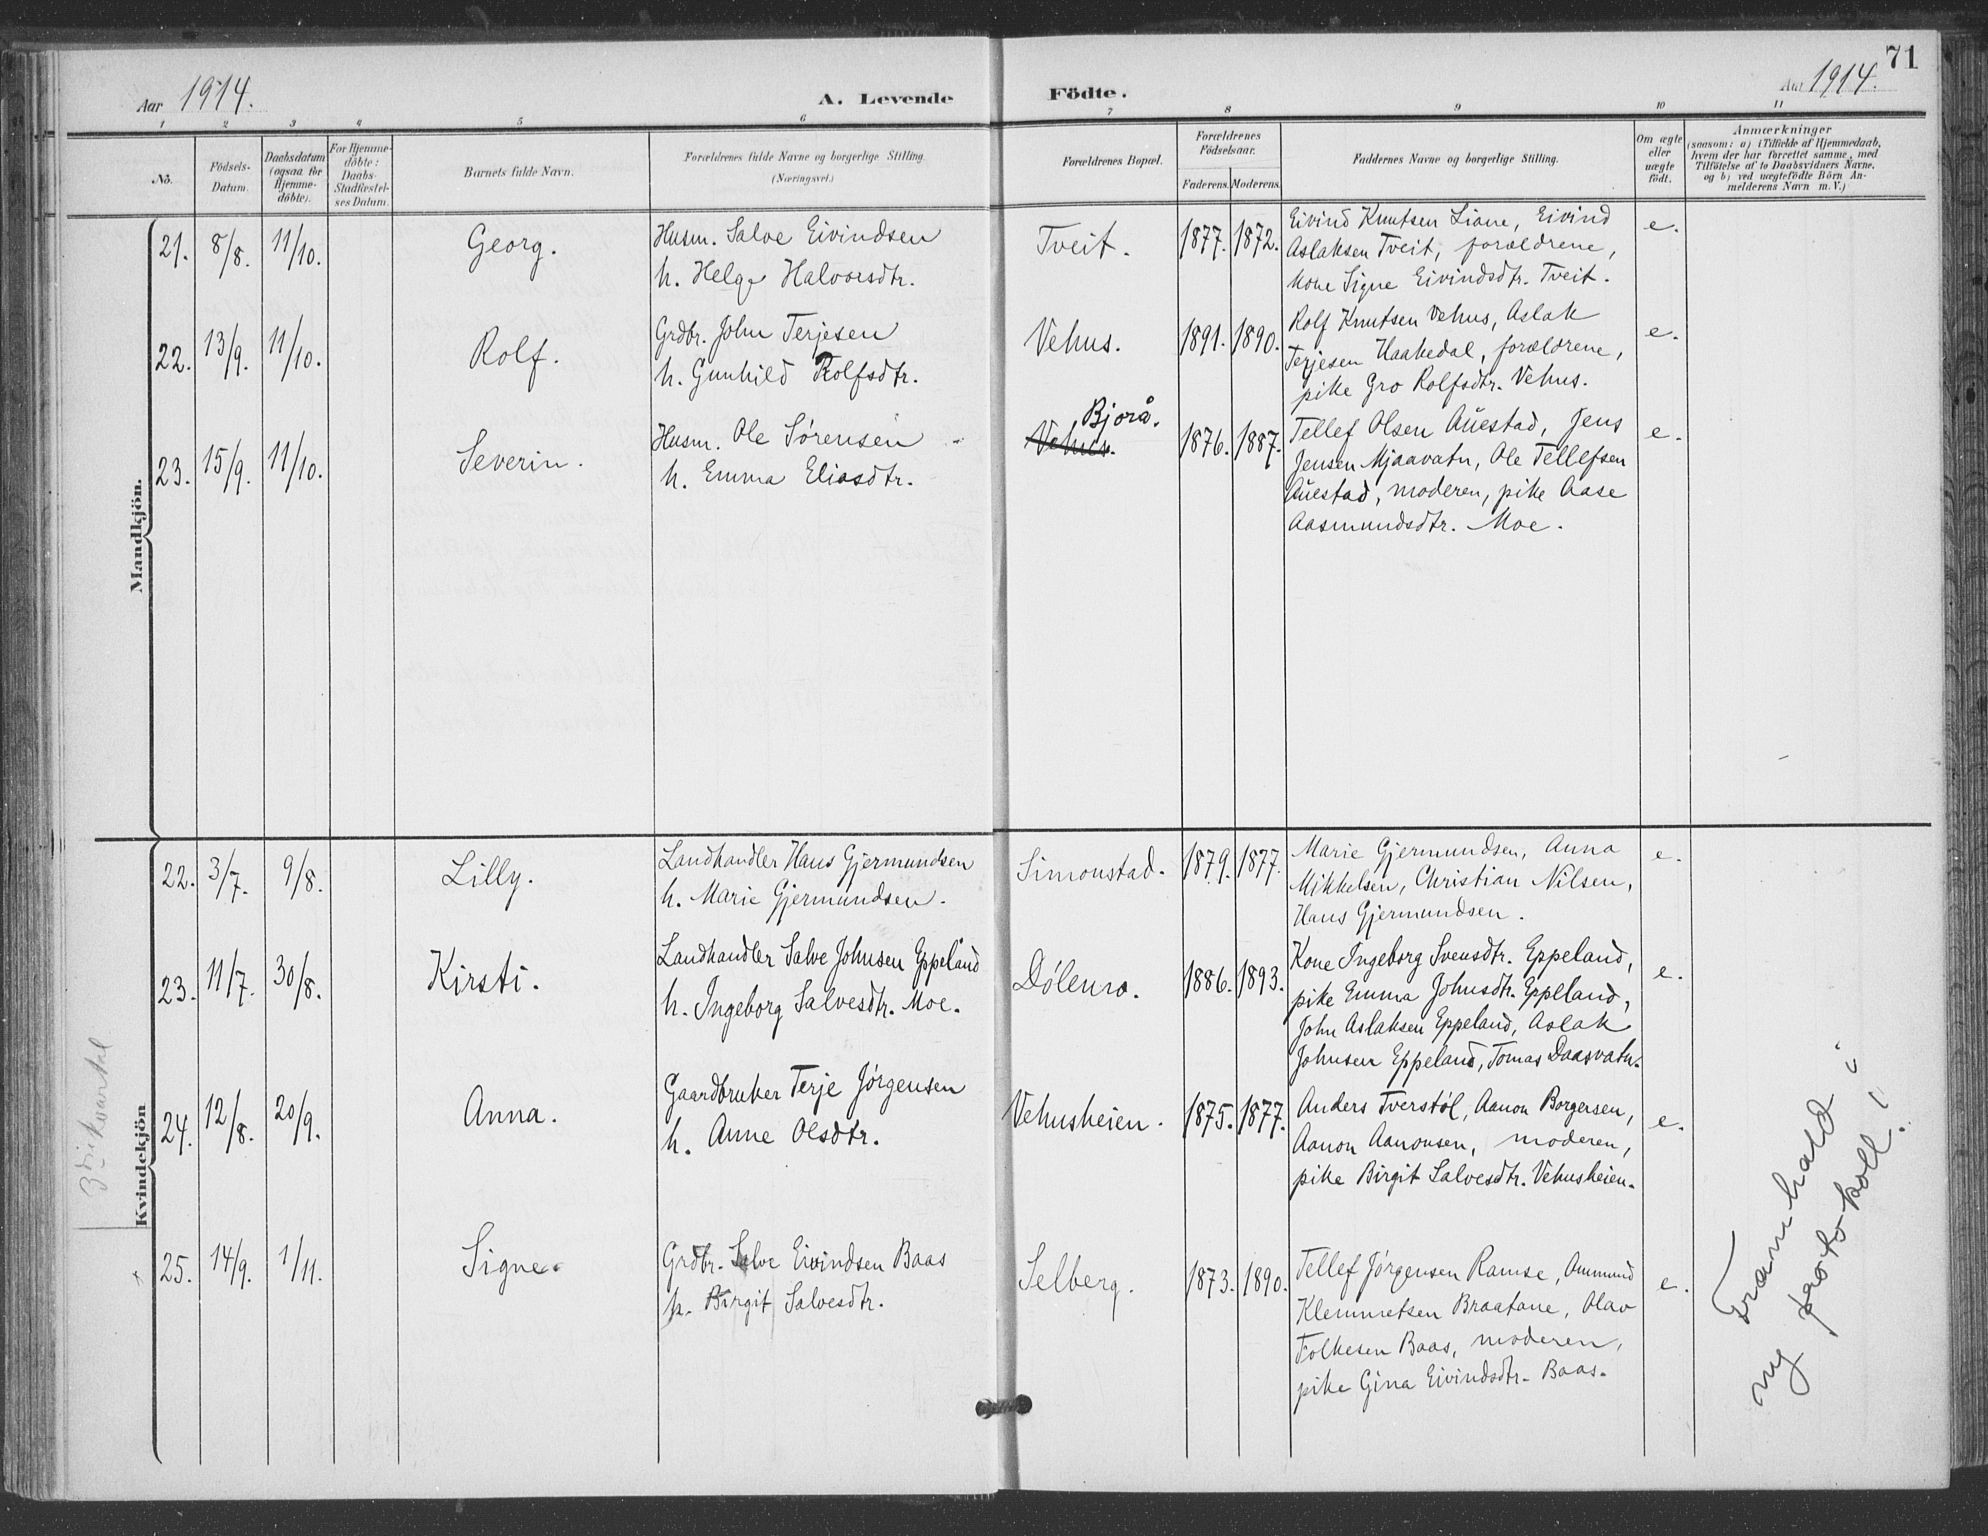 71
Aar 1914.
A. Levende Födte.
Aar 1914.
1 2 3 4 5 6 7 8 9 10 11
No.
Födsels-
Datum.
Daabsdatum
(ogsaa for
Hjemme-
döbte).
For Hjemme-
döbte:
Daabs-
Stadfæstel-
ses Datum.
Barnets fulde Navn.
Forældrenes fulde Navne og borgerlige Stilling.
(Næringsvei.)
Forældrenes Bopæl.
Forældrenes
Födselsaar.
Faderens. Moderens.
Faddernes Navne og borgerlige Stilling.
Om ægte
eller
uægte
födt.
Anmærkninger
(saasom: a) i Tilfælde af Hjemmedaab,
hvem der har forrettet samme, med
Tilföielse af to Daabsvidners Navne,
og b) ved uægtefödte Börn An-
melderens Navn m. V.)
Mandkjön.
21. 8/8. 11/10. Georg. Husm. Salve Eivindsen
h. Helge Halvorsdtr.
Tveit. 1877. 1872. Eivind Knutsen Liane, Eivind
Aslaksen Tveit, forældrene,
kone Signe Eivindsdtr. Tveit.
e.
22. 13/9. 11/10. Rolf. Grdbr. John Terjesen
h. Gunhild Rolfsdtr.
Vehus. 1891. 1890. Rolf Knutsen Vehus, Aslak
Terjesen Haakedal, forældrene,
pike Gro Rolfsdtr. Vehus.
e.
23. 15/9. 11/10. Severin. Husm. Ole Sørensen
h. Emma Eliasdtr.
Bjorå.
Vehus. 1876. 1887. Tellef Olsen Aüestad, Jens
Jensen Mjaavatn, Ole Tellefsen
Aüestad, moderen, pike Aase
Aasmundsdtr. Moe.
e.
Kvindekjön
22. 3/7. 9/8. Lilly. Landhandler Hans Gjermundsen
h. Marie Gjermundsen.
Simonstad. 1879. 1877. Marie Gjermundsen, Anna
Mikkelsen, Christian Nilsen,
Hans Gjermundsen.
e.
23. 11/7. 30/8. Kirsti. Landhandler Salve Johnsen Eppeland
h. Ingeborg Salvesdtr. Moe.
Dølemo. 1886. 1893. Kone Ingeborg Svensdtr. Eppeland,
pike Emma Johnsdtr. Eppeland,
John Aslaksen Eppeland, Aslak
Johnsen Eppeland, Tomas Daasvatn.
e.
24. 12/8. 20/9. Anna. Gaardbruker Terje Jørgensen
h. Anne Olsdtr.
Vehusheien. 1875. 1877. Anders Tverstøl, Aanon Borgersen,
Aanon Aanonsen, moderen,
pike Birgit Salvesdtr. Vehusheien.
e.
25. 14/9. 1/11. Signe. Grdbr. Salve Eivindsen Baas
h. Birgit Salvesdtr.
Selberg. 1873. 1890. Tellef Jørgensen Ramse, Ommund
Klemmetsen Braatane, Olav
Folkesen Baas, moderen,
pike Gina Eivindsdtr. Baas.
e.
Framhald i
ny protokoll!